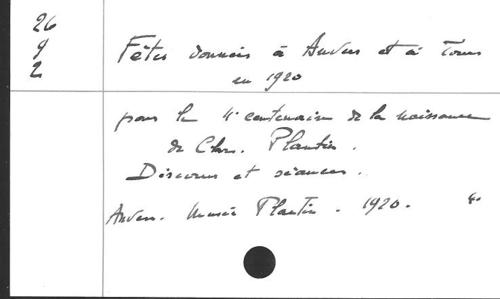 26
9
2
Fêtes données à Anvers et à Tours
en 1920
pour le 4e centenaire de la naissance
de Chr. Plantin.
Discours et séances.
Anvers. Musée Plantin. 1920. 8o